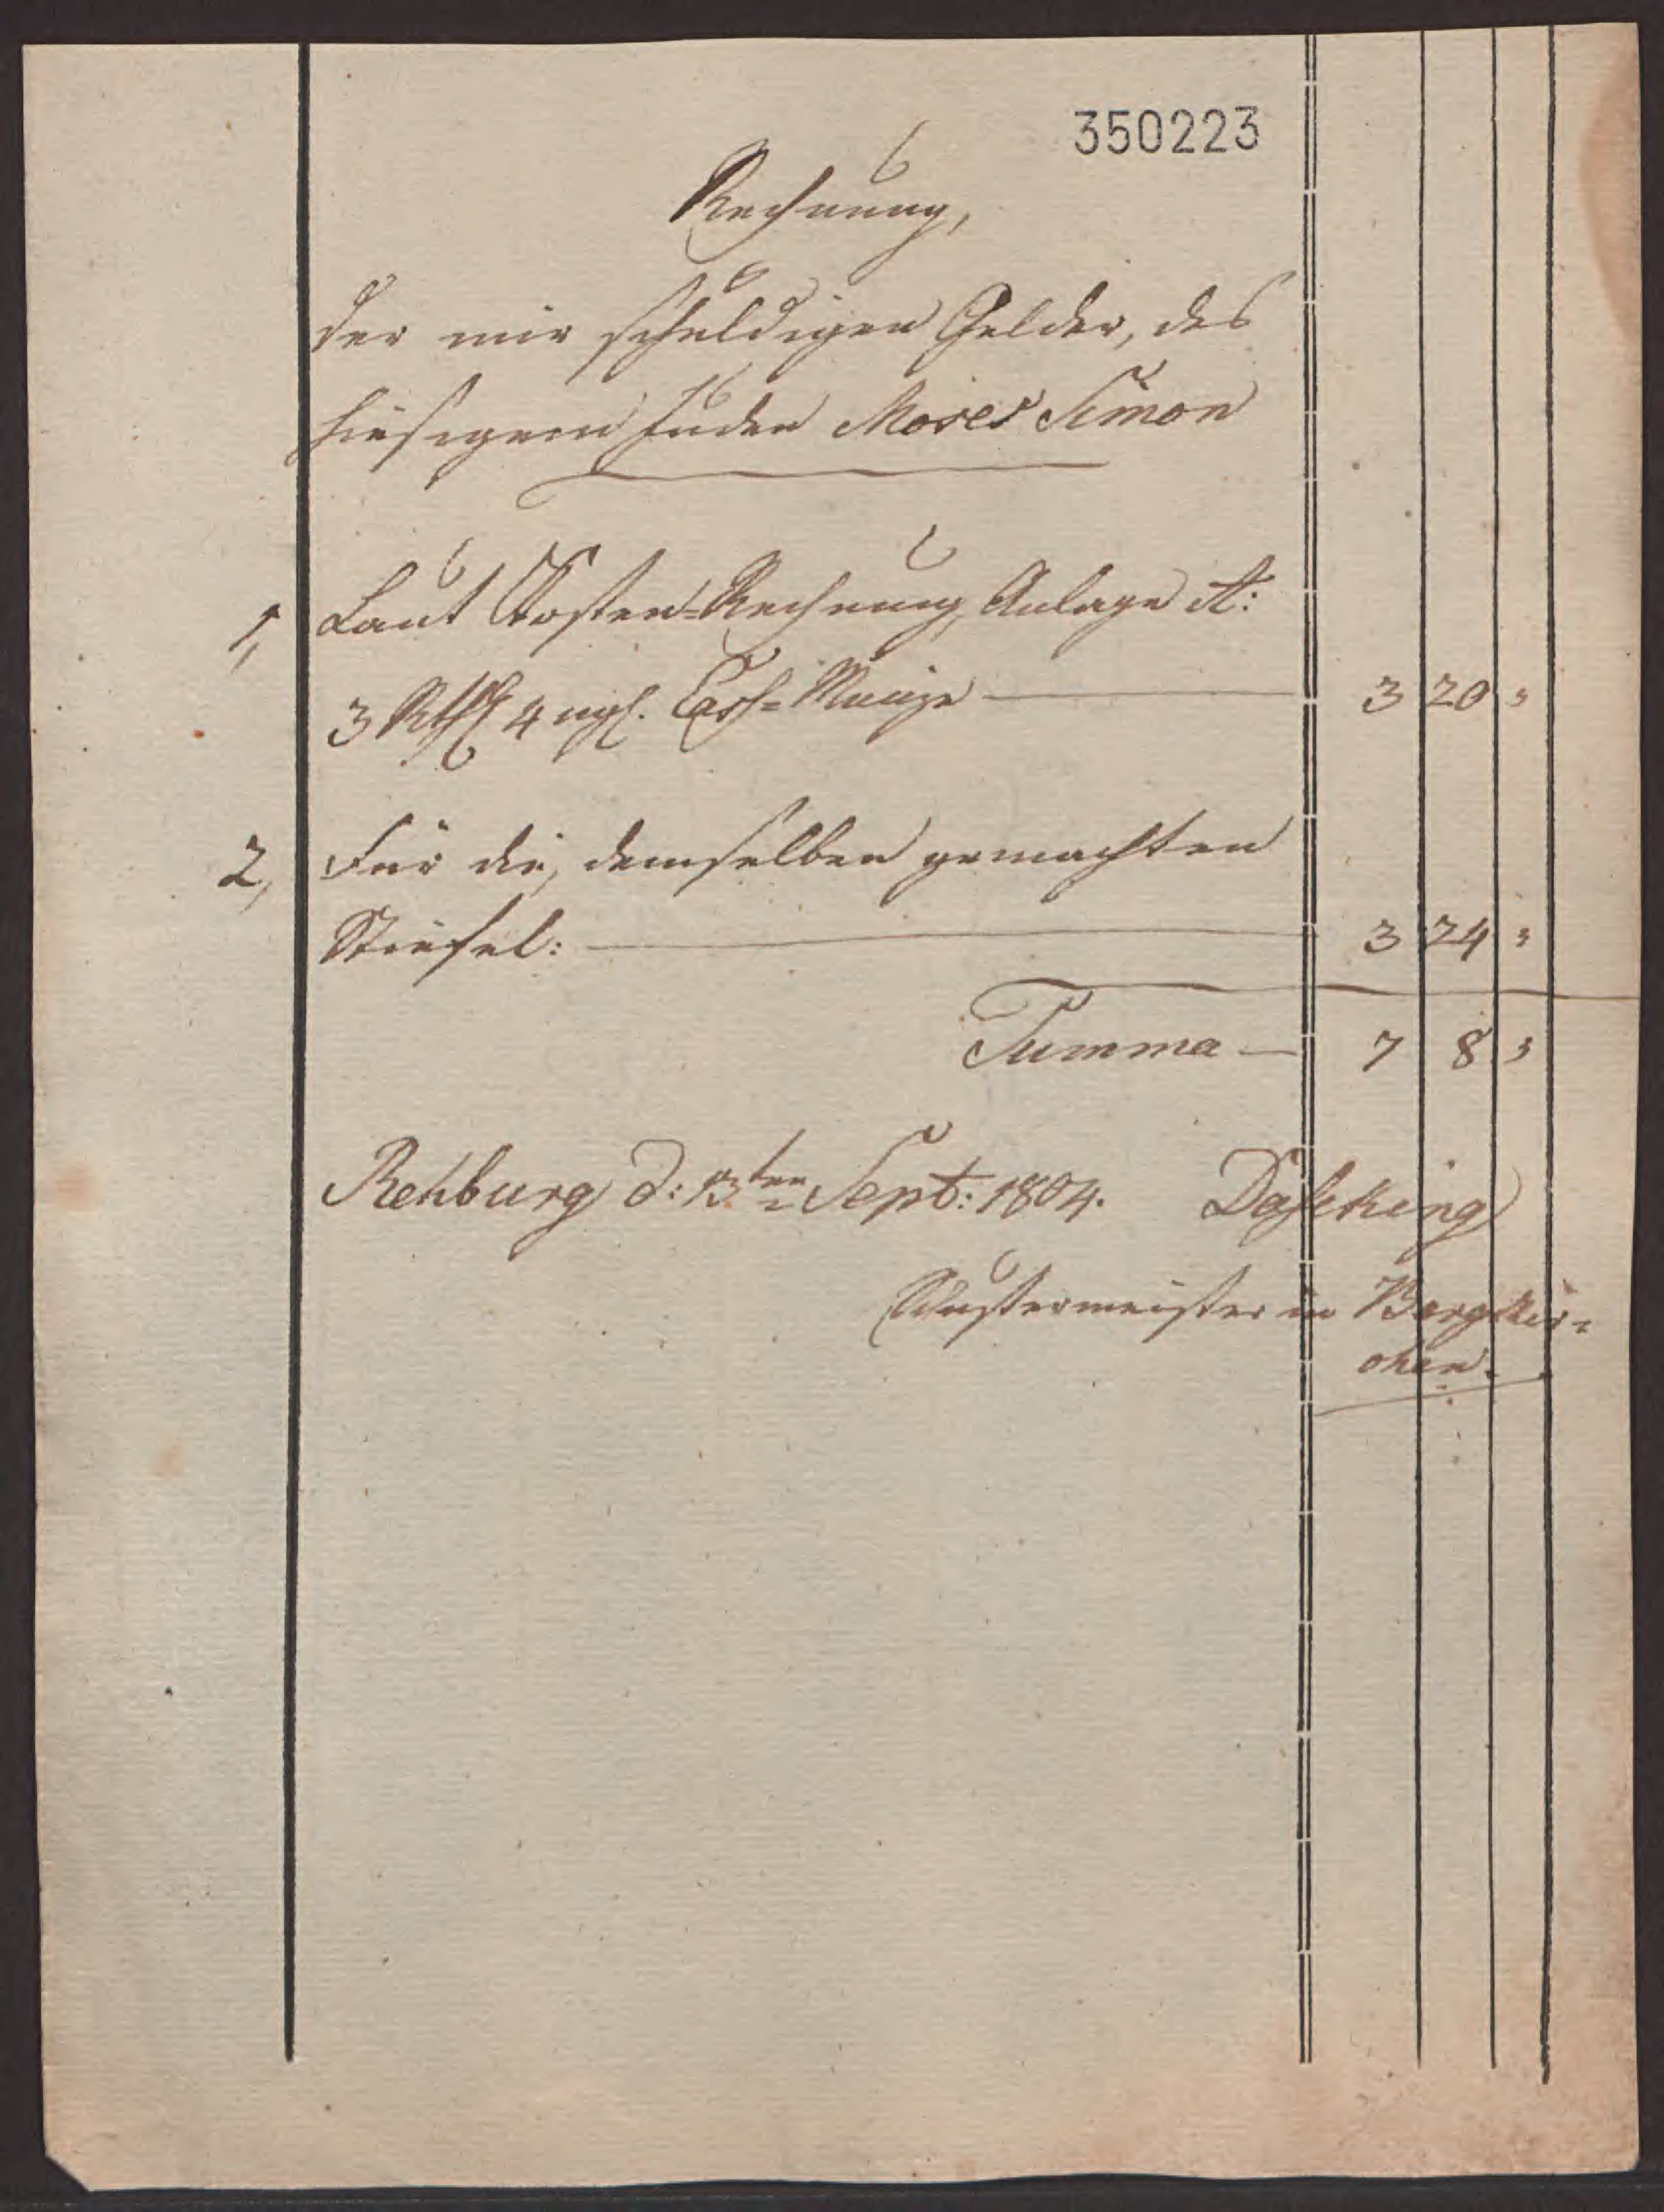 350223
Rechnung,
der mir schuldigen Gelder, des
hiesigen Juden Moses Simon
1, Laut Kosten-Rechnung Anlage A:
3 Rthlr 4 mgl. Cass-Münze — 3 20 "
2, Für die, demselben gemachten
Stiefel: — 3 24 "
Summa — 7 8 "
Rehburg d: 13ten Sept: 1804. Daseking
Schustermeister in Bergkir=
chen.